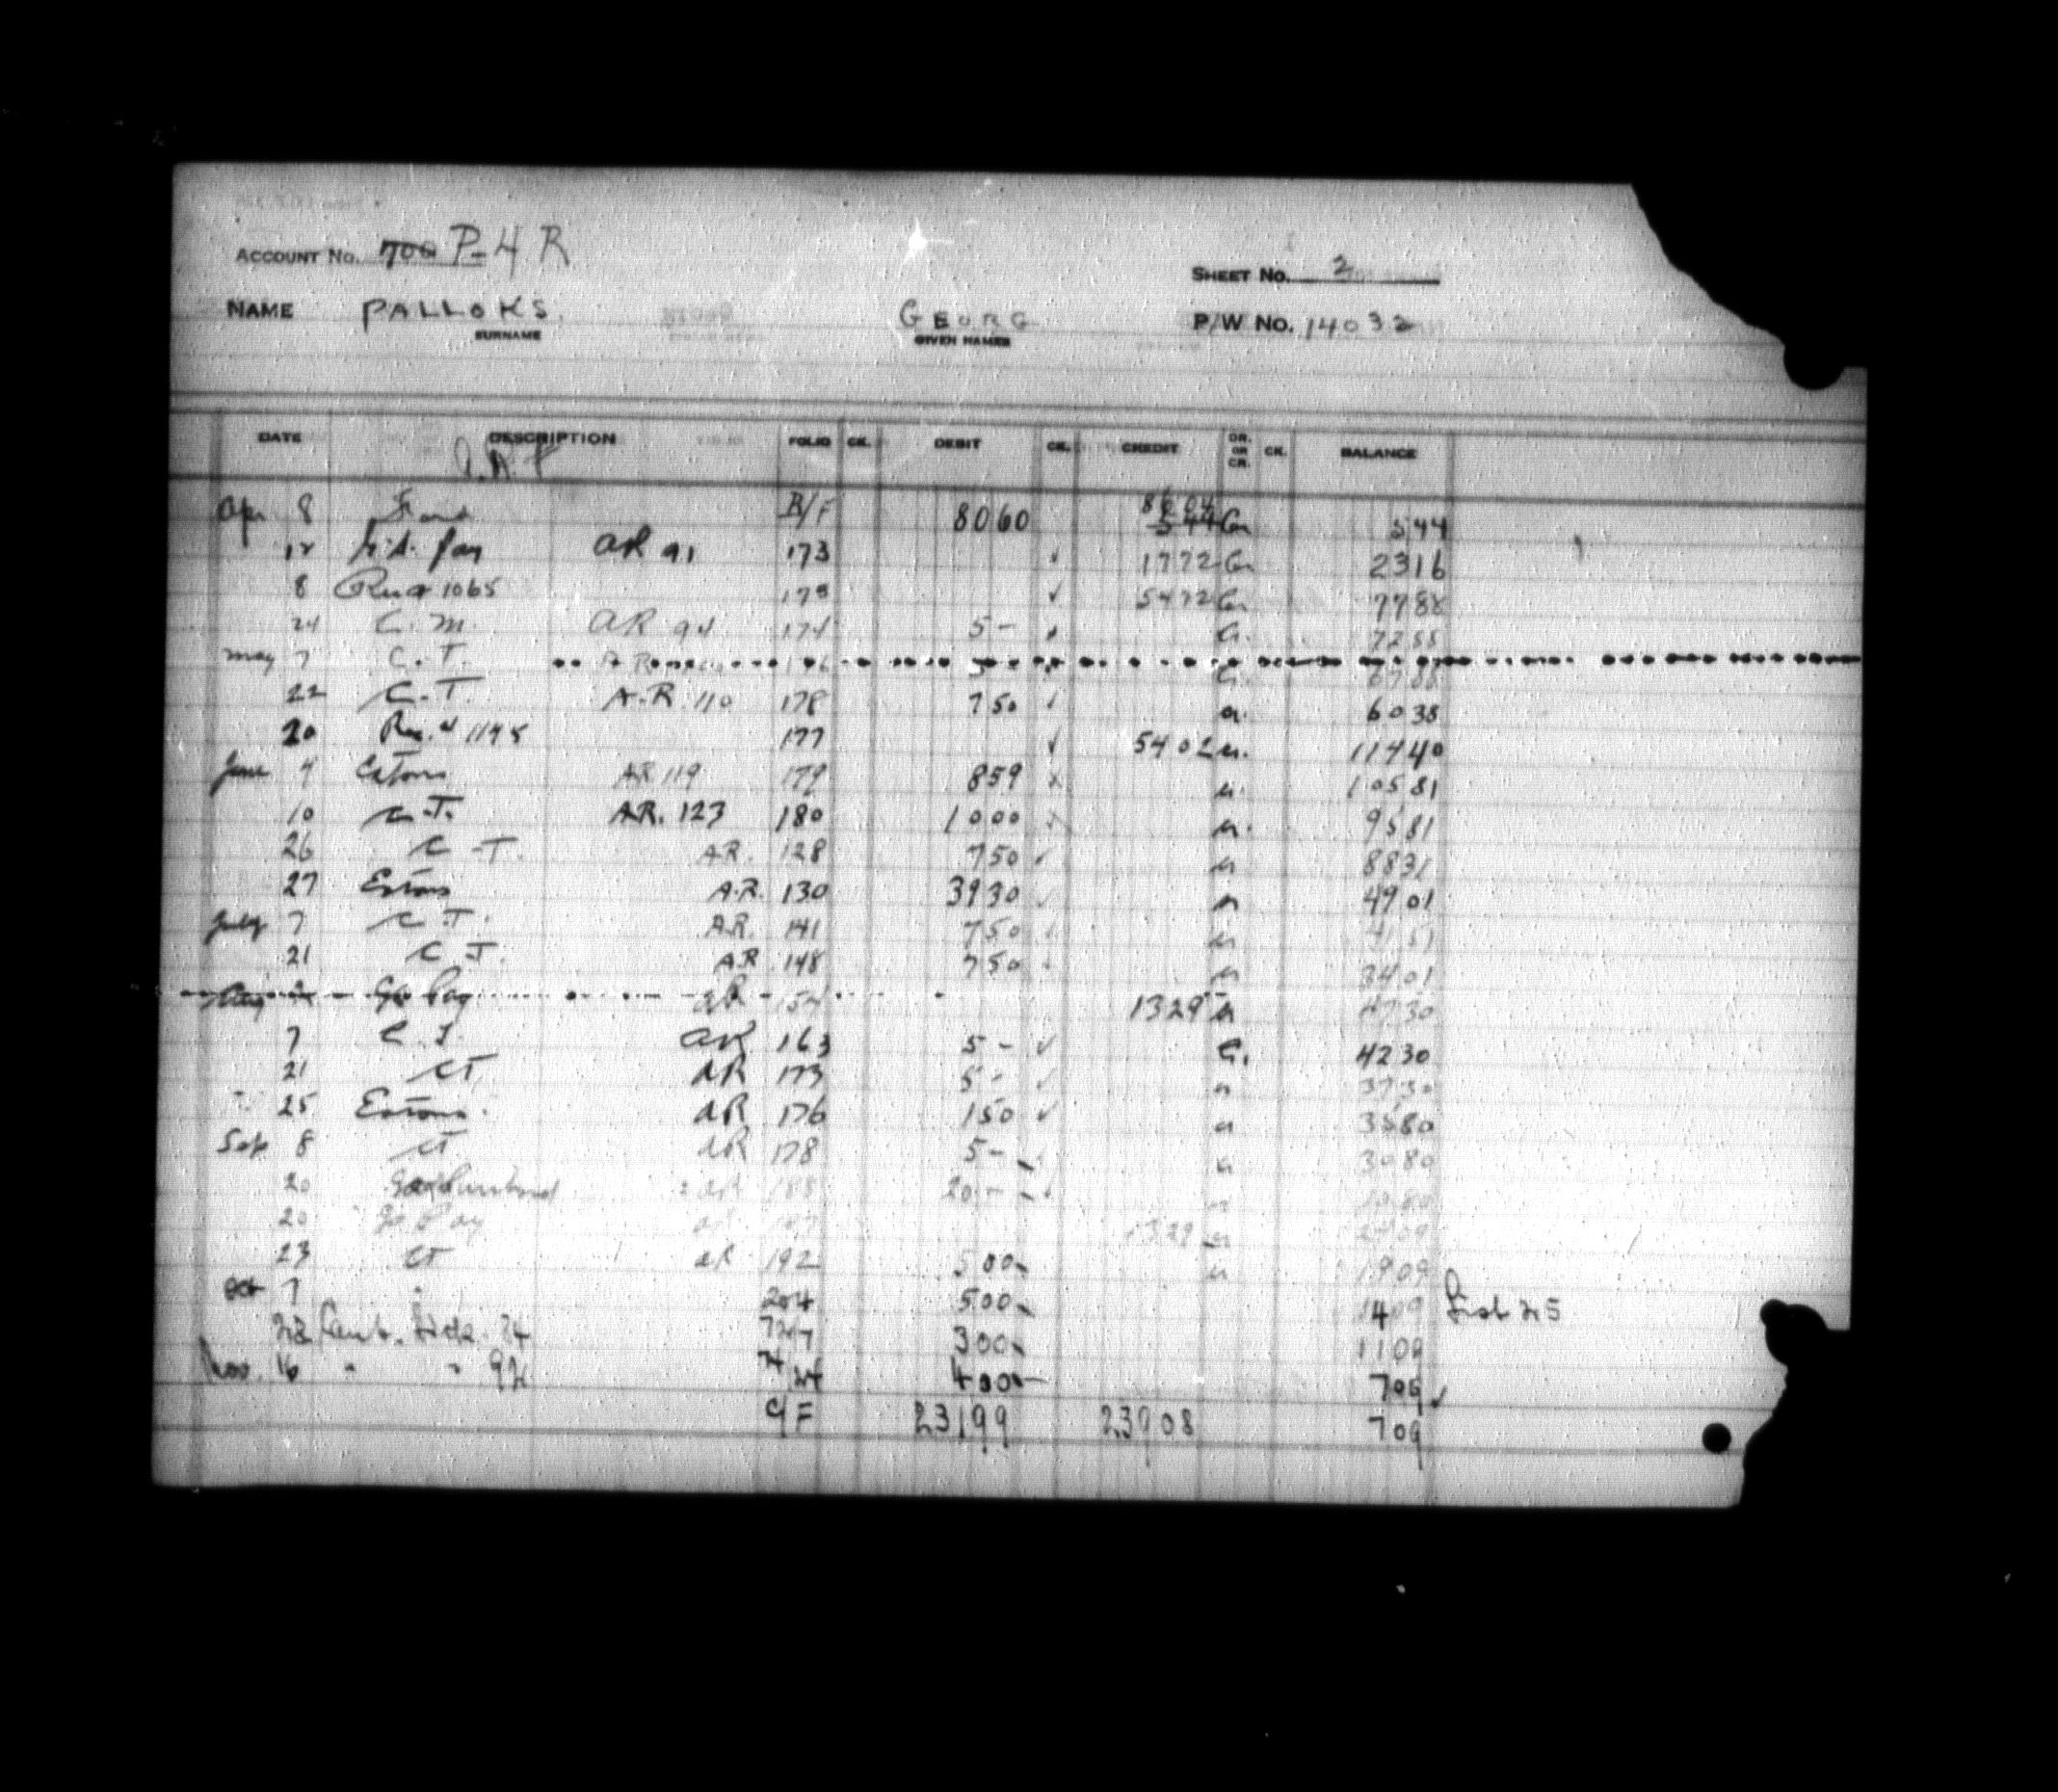 ACCOUNT No. 700 P-4 R
SHEET No. 2
NAME PALLOKS GEORG P/W No. 14032
SURNAME GIVEN NAMES
DATE DESCRIPTION FOLIO CK. DEBIT CK. CREDIT DR. OR CR. CK. BALANCE
Apr 8 B/F 8060 8604 544 Cr 544
12 Pay AR 91 173 ✓ 1772 Cr 2316
8 1065 173 ✓ 5472 Cr 7788
24 C.M. AR 94 174 5 - Cr. 7288
May 7 C.T. A.R. 5 - Cr. 6788
22 C.T. A.R. 110 178 750 ✓ 6038
20 1195 177 ✓ 5402 11440
June 4 Eatons AR 119 179 859 10581
10 C.T. AR. 123 180 1000 9581
26 C.T. AR. 128 750 ✓ 8831
27 Eatons A.R. 130 3930 ✓ 4901
July 7 C.T. A.R. 141 750 4151
21 C.T. A.R 148 750 3401
Aug Pay AR 154 1329 4730
7 C.T. AR 163 5 - ✓ C. 4230
21 CT AR 173 5 - ✓ 3730
25 Eatons AR 176 150 ✓ 3580
Sep 8 CT AR 178 5 - 3080
20 AR 188 20 - 1080
20 Pay 1329 2409
23 CT AR 192 500 1909
Oct 7 204 500 1409
300 1109
Nov. 16 " " 92 400 709 ✓
C/F 23199 23908 709